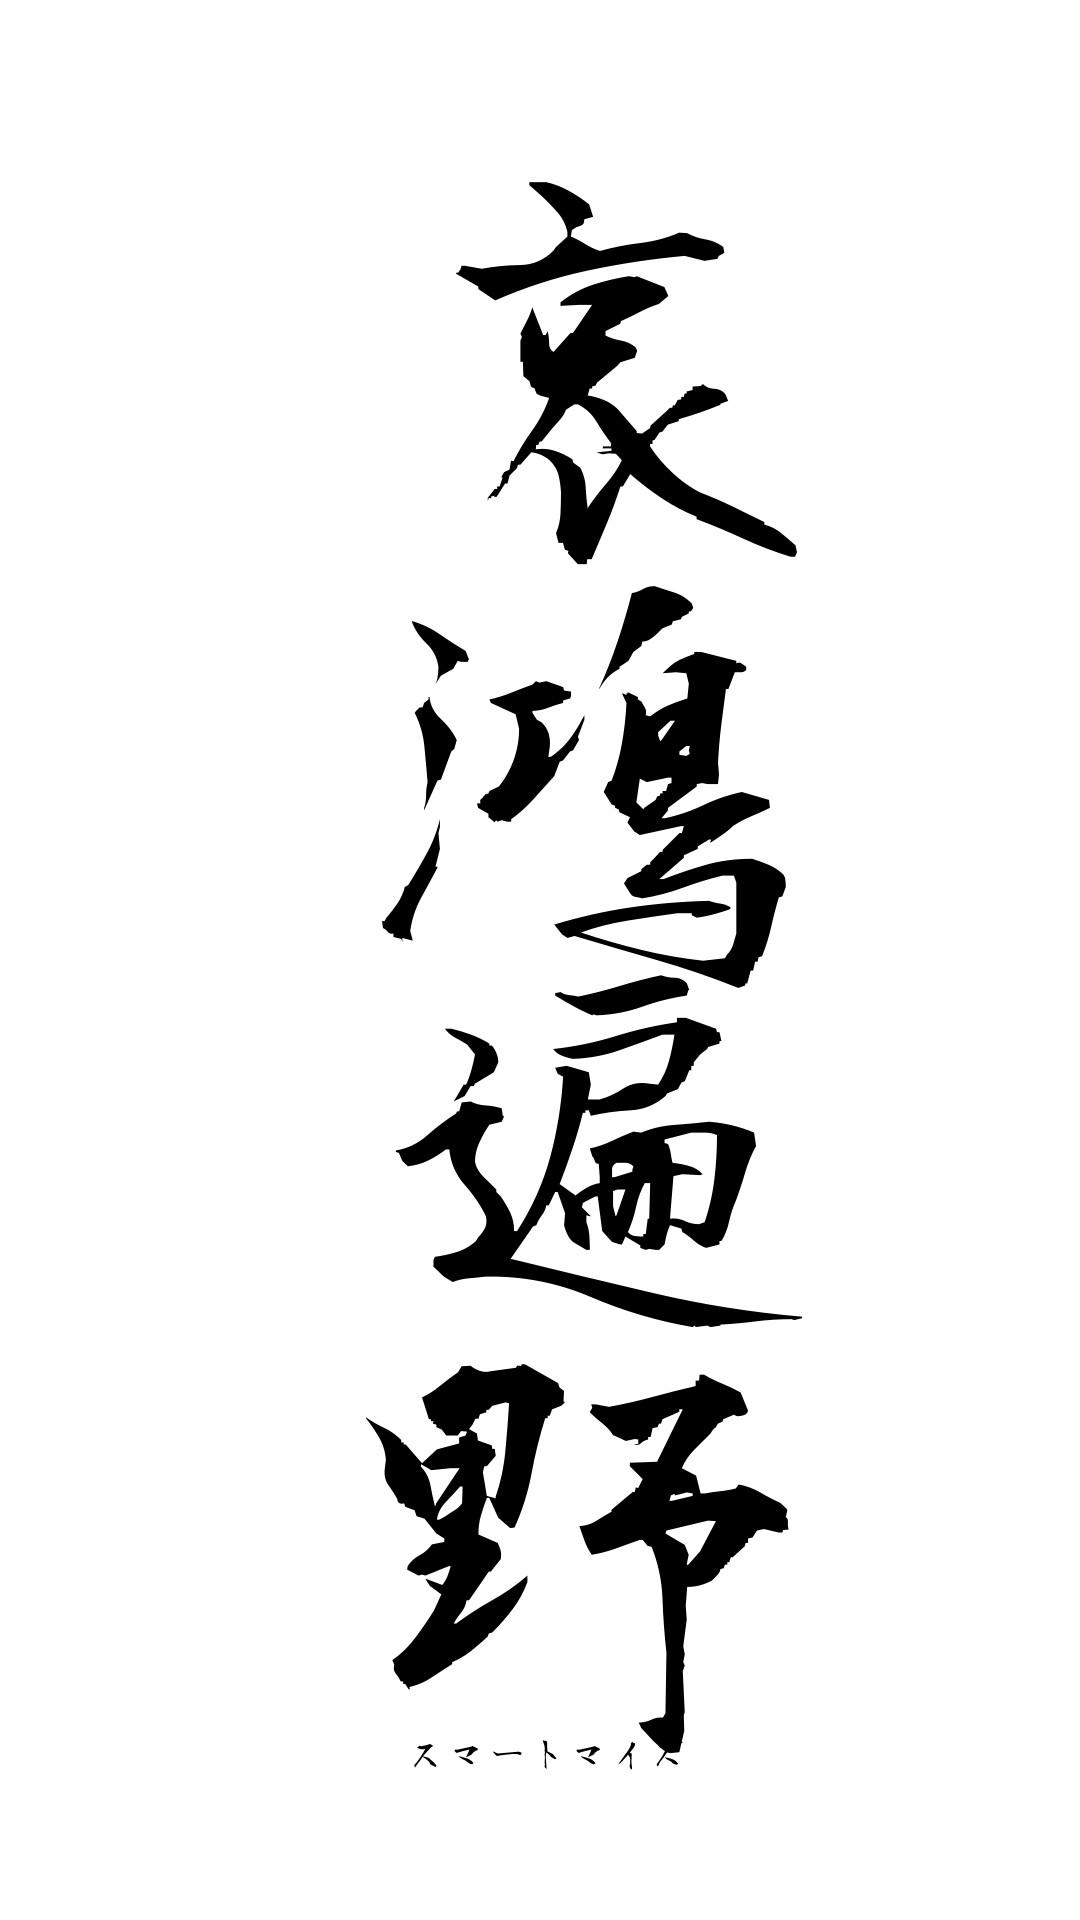 哀鴻遍野
スマートマイス